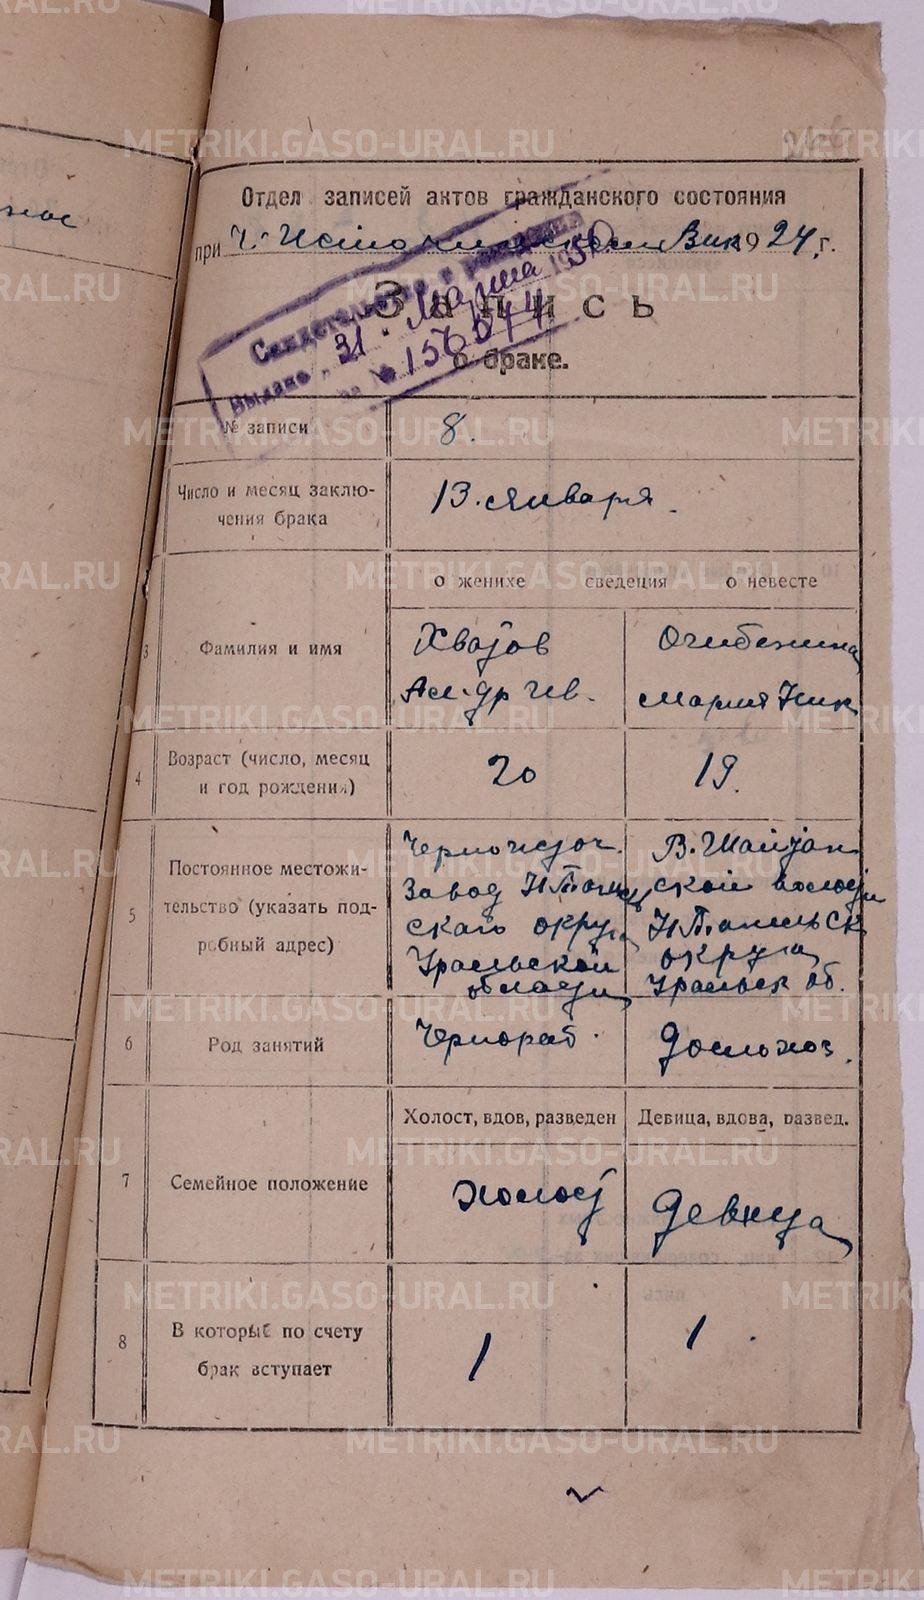 Отдел записей актов гражданского состояния
при Ч-Источинском Вик 1924 г.
Свидетельство о рождении
Выдано "31" Марта 1950
за № 156074
Запись
о браке.
№ записи 8.
Число и месяц заклю-
чения брака 13. января.
о женихе сведения о невесте
3 Фамилия и имя
Хватов Ошибенина
Ал-др Ив. Мария Ник
4 Возраст (число, месяц
и год рождения) 20 19.
5 Постоянное местожи-
тельство (указать под-
робный адрес)
Черноисточ.
завод НТагиль
скаго округа
Уральской
области
В. Шайтан
ской волости
НТагильск
округа
Уральск об.
6 Род занятий Чернораб. домохоз.
Холост, вдов, разведен Девица, вдова, развед.
7 Семейное положение холост девица
8 В который по счету
брак вступает 1 1.
METRIKI.GASO-URAL.RU